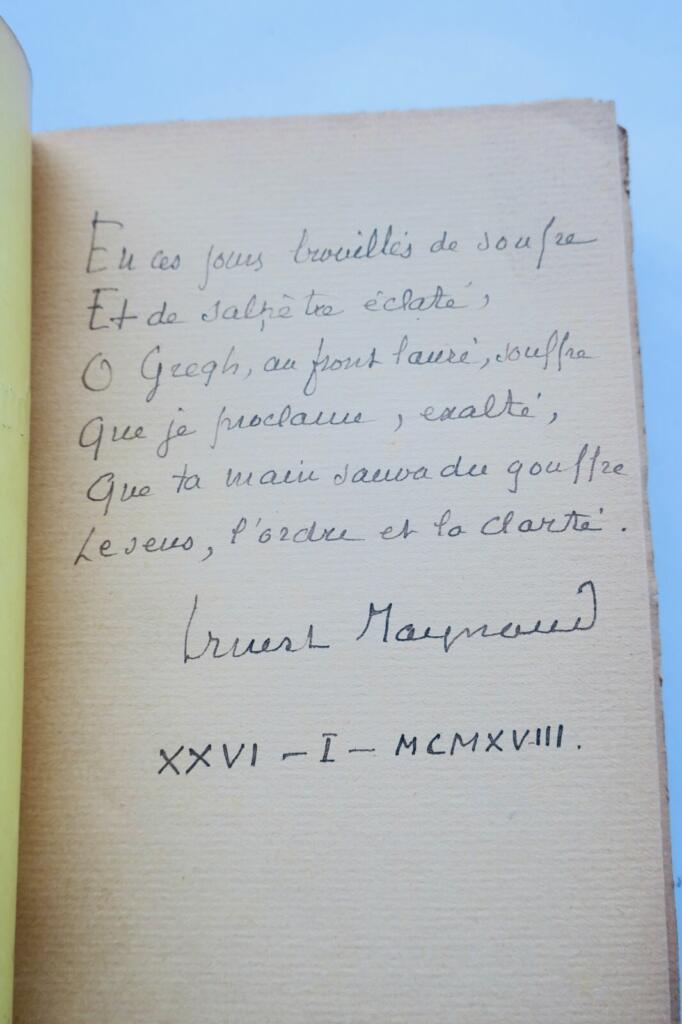 En ces jours brouillés de soufre
Et de salpêtre éclaté,
O Gregh, au front lauré, souffre
Que je proclame, exalté,
Que ta main sauva du gouffre
Le sens, l'ordre et la clarté.
Ernest Raynaud
XXVI - I - MCMXVIII.